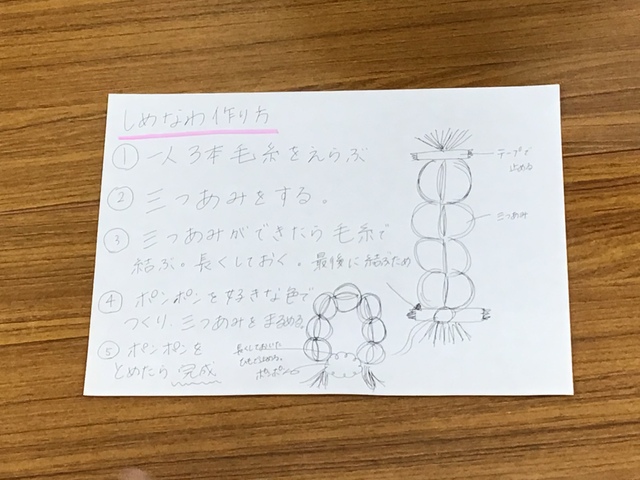 しめなわ作り方
① 一人3本毛糸をえらぶ
② 三つあみをする。
③ 三つあみができたら毛糸で
結ぶ。長くしておく。最後に結ぶため
④ ポンポンを好きな色で
つくり、三つあみをまるめる。
⑤ ポンポンを
とめたら 完成
テープで
止める
三つあみ
長くしておいた
ポンポン